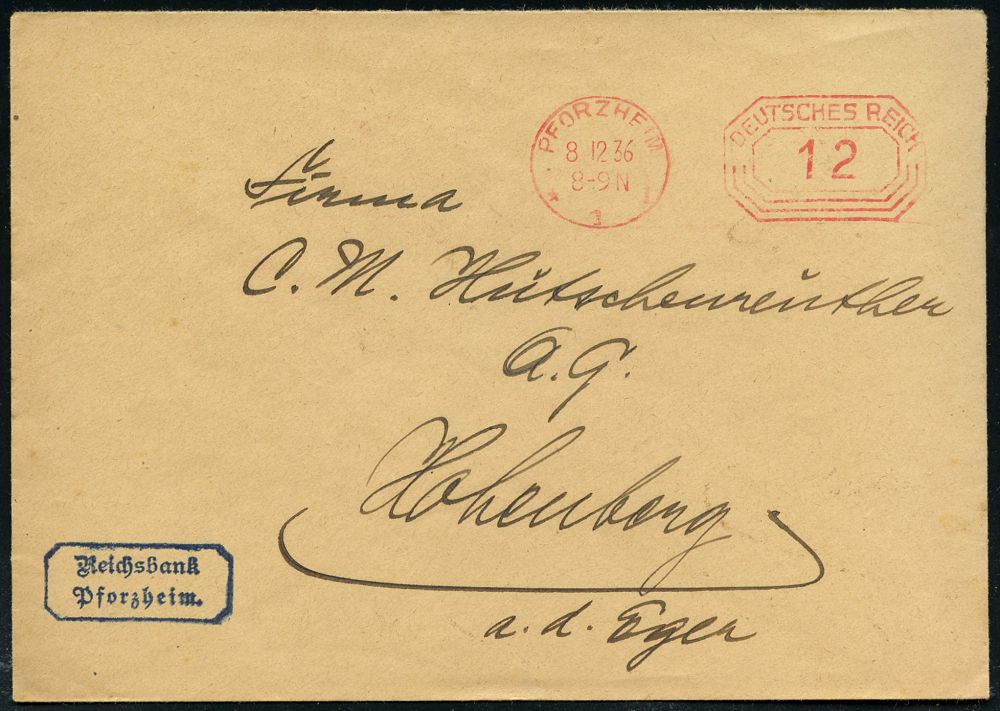 PFORZHEIM
8.12.36
8-9 N
* 1 1
DEUTSCHES REICH
12
Firma
C. M. Hutschenreuther
A. G.
Hohenberg
a. d. Eger
Reichsbank
Pforzheim.